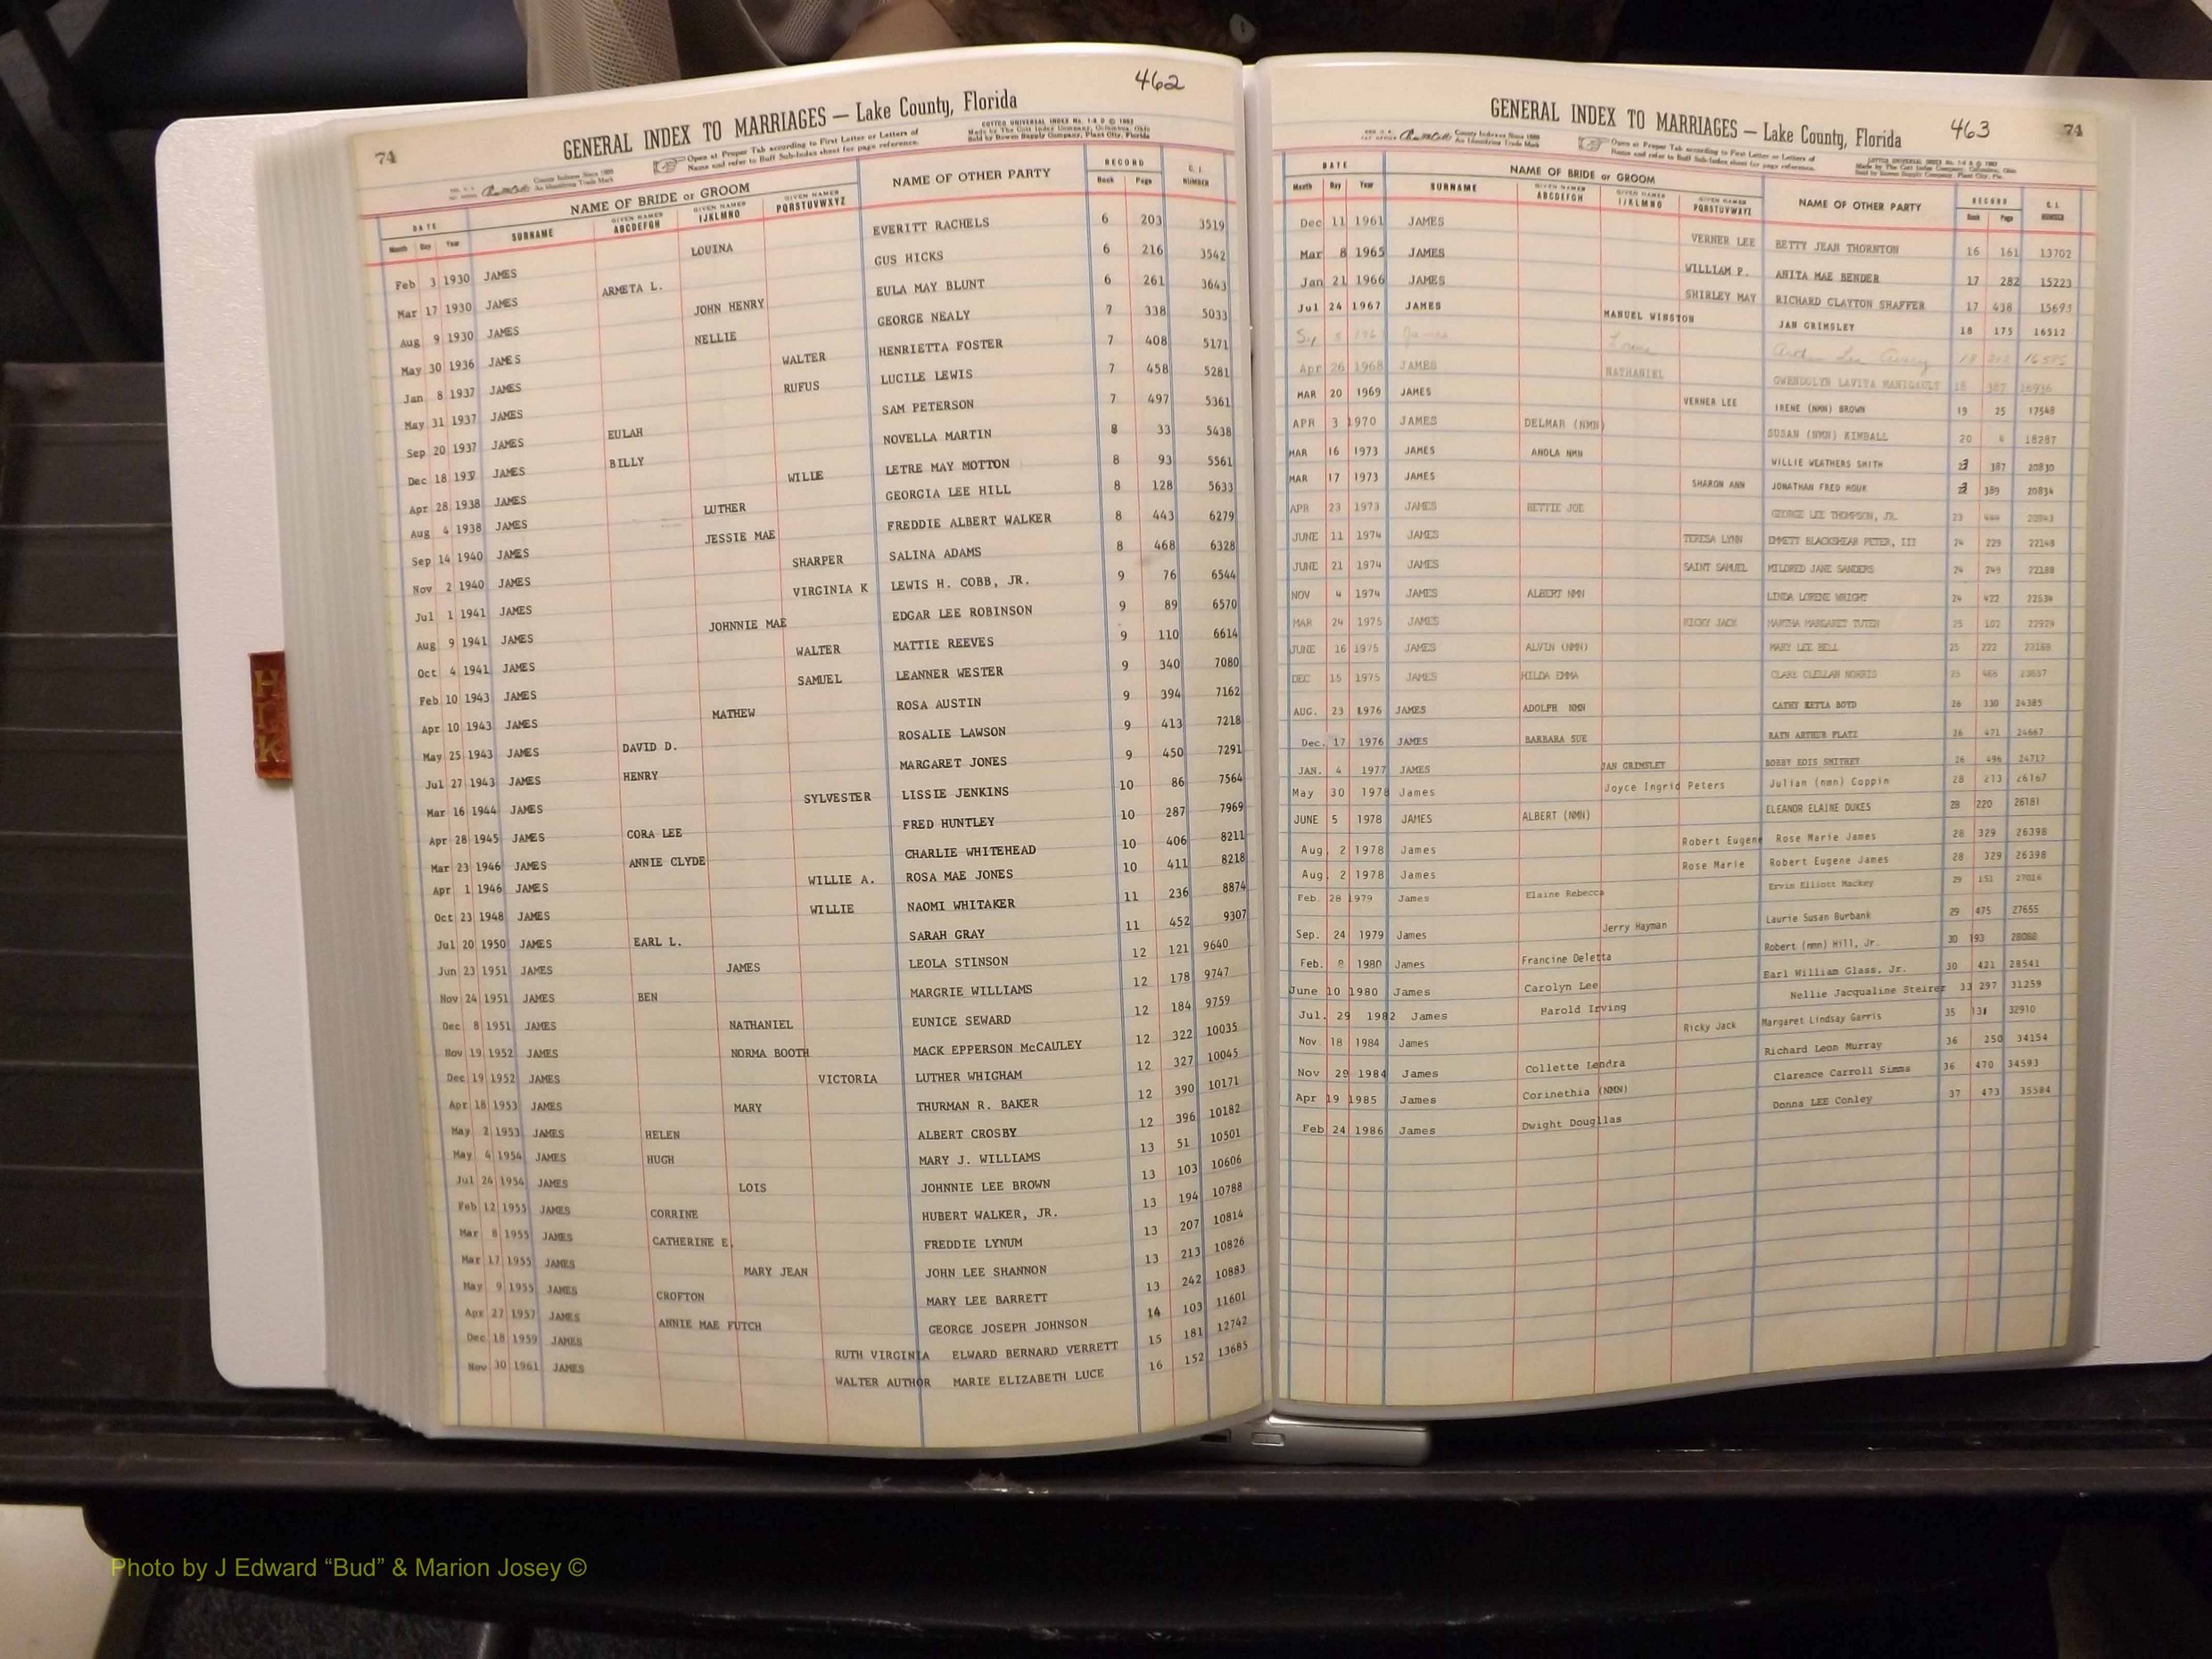 462
74
GENERAL INDEX TO MARRIAGES — Lake County, Florida
COTTCO UNIVERSAL INDEX No. 1-8 D © 1963
Made by The Cott Index Company, Columbus, Ohio
Sold by Bowen Supply Company, Plant City, Florida
County Indexes Since 1888
An Identifying Trade Mark
Open at Proper Tab according to First Letter or Letters of
Name and refer to Buff Sub-Index sheet for page reference.
DATE NAME OF BRIDE or GROOM NAME OF OTHER PARTY RECORD C. I. NUMBER
Month Day Year SURNAME GIVEN NAMES ABCDEFGH GIVEN NAMES IJKLMNO GIVEN NAMES PQRSTUVWXYZ Book Page
Feb 3 1930 JAMES LOUINA EVERITT RACHELS 6 203 3519
Mar 17 1930 JAMES ARMETA L. GUS HICKS 6 216 3542
Aug 9 1930 JAMES JOHN HENRY EULA MAY BLUNT 6 261 3643
May 30 1936 JAMES NELLIE GEORGE NEALY 7 338 5033
Jan 8 1937 JAMES WALTER HENRIETTA FOSTER 7 408 5171
May 31 1937 JAMES RUFUS LUCILE LEWIS 7 458 5281
Sep 20 1937 JAMES EULAH SAM PETERSON 7 497 5361
Dec 18 1937 JAMES BILLY NOVELLA MARTIN 8 33 5438
Apr 28 1938 JAMES WILLIE LETRE MAY MOTTON 8 93 5561
Aug 4 1938 JAMES LUTHER GEORGIA LEE HILL 8 128 5633
Sep 14 1940 JAMES JESSIE MAE FREDDIE ALBERT WALKER 8 443 6279
Nov 2 1940 JAMES SHARPER SALINA ADAMS 8 468 6328
Jul 1 1941 JAMES VIRGINIA K LEWIS H. COBB, JR. 9 76 6544
Aug 9 1941 JAMES JOHNNIE MAE EDGAR LEE ROBINSON 9 89 6570
Oct 4 1941 JAMES WALTER MATTIE REEVES 9 110 6614
Feb 10 1943 JAMES SAMUEL LEANNER WESTER 9 340 7080
Apr 10 1943 JAMES MATHEW ROSA AUSTIN 9 394 7162
May 25 1943 JAMES DAVID D. ROSALIE LAWSON 9 413 7218
Jul 27 1943 JAMES HENRY MARGARET JONES 9 450 7291
Mar 16 1944 JAMES SYLVESTER LISSIE JENKINS 10 86 7564
Apr 28 1945 JAMES CORA LEE FRED HUNTLEY 10 287 7969
Mar 23 1946 JAMES ANNIE CLYDE CHARLIE WHITEHEAD 10 406 8211
Apr 1 1946 JAMES WILLIE A. ROSA MAE JONES 10 411 8218
Oct 23 1948 JAMES WILLIE NAOMI WHITAKER 11 236 8874
Jul 20 1950 JAMES EARL L. SARAH GRAY 11 452 9307
Jun 23 1951 JAMES JAMES LEOLA STINSON 12 121 9640
Nov 24 1951 JAMES BEN MARGRIE WILLIAMS 12 178 9747
Dec 8 1951 JAMES NATHANIEL EUNICE SEWARD 12 184 9759
Nov 19 1952 JAMES NORMA BOOTH MACK EPPERSON McCAULEY 12 322 10035
Dec 19 1952 JAMES VICTORIA LUTHER WHIGHAM 12 327 10045
Apr 18 1953 JAMES MARY THURMAN R. BAKER 12 390 10171
May 2 1953 JAMES HELEN ALBERT CROSBY 12 396 10182
May 4 1954 JAMES HUGH MARY J. WILLIAMS 13 51 10501
Jul 24 1954 JAMES LOIS JOHNNIE LEE BROWN 13 103 10606
Feb 12 1955 JAMES CORRINE HUBERT WALKER, JR. 13 194 10788
Mar 8 1955 JAMES CATHERINE E. FREDDIE LYNUM 13 207 10814
Mar 17 1955 JAMES MARY JEAN JOHN LEE SHANNON 13 213 10826
May 9 1955 JAMES CROFTON MARY LEE BARRETT 13 242 10883
Apr 27 1957 JAMES ANNIE MAE FUTCH GEORGE JOSEPH JOHNSON 14 103 11601
Dec 18 1959 JAMES RUTH VIRGINIA ELWARD BERNARD VERRETT 15 181 12742
Nov 30 1961 JAMES WALTER AUTHOR MARIE ELIZABETH LUCE 16 152 13685
GENERAL INDEX TO MARRIAGES — Lake County, Florida
463
74
County Indexes Since 1888
An Identifying Trade Mark
Open at Proper Tab according to First Letter or Letters of
Name and refer to Buff Sub-Index sheet for page reference.
DATE NAME OF BRIDE or GROOM NAME OF OTHER PARTY RECORD C. I. NUMBER
Month Day Year SURNAME GIVEN NAMES ABCDEFGH GIVEN NAMES IJKLMNO GIVEN NAMES PQRSTUVWXYZ Book Page
Dec 11 1961 JAMES VERNER LEE BETTY JEAN THORNTON 16 161 13702
Mar 8 1965 JAMES WILLIAM P. ANITA MAE BENDER 17 282 15223
Jan 21 1966 JAMES SHIRLEY MAY RICHARD CLAYTON SHAFFER 17 438 15693
Jul 24 1967 JAMES MANUEL WINSTON JAN GRIMSLEY 18 175 16512
James Lee
Apr 26 1968 JAMES NATHANIEL GWENDOLYN LAVITA MANIGAULT 18 387 16936
MAR 20 1969 JAMES VERNER LEE IRENE (NMN) BROWN 19 25 17548
APR 3 1970 JAMES DELMAR (NMN) SUSAN (NMN) KIMBALL 20 18287
MAR 16 1973 JAMES ANOLA NMN WILLIE WEATHERS SMITH 387 20830
MAR 17 1973 JAMES SHARON ANN JONATHAN FRED HOUK 389 20834
APR 23 1973 JAMES BETTIE JOE GEORGE LEE THOMPSON, JR. 23 20943
JUNE 11 1974 JAMES TERESA LYNN EMMETT BLACKSHEAR PETER, III 24 229 22148
JUNE 21 1974 JAMES SAINT SAMUEL MILDRED JANE SANDERS 24 249 22188
NOV 4 1974 JAMES ALBERT NMN LINDA LORENE WRIGHT 24 422 22534
MAR 24 1975 JAMES RICKY JACK MARTHA MARGARET TUTEN 25 102 22929
JUNE 16 1975 JAMES ALVIN (NMN) MARY LEE BELL 25 222 23168
DEC 15 1975 JAMES HILDA EMMA CLARE CLELLAN NORRIS 25 466 23657
AUG. 23 1976 JAMES ADOLPH NMN CATHY BOYD 26 330 24385
Dec. 17 1976 JAMES BARBARA SUE ARTHUR PLATZ 26 471 24667
JAN. 4 1977 JAMES JAN GRIMSLEY BOBBY SMITHEY 26 496 24717
May 30 1978 James Joyce Ingrid Peters Julian (nmn) Coppin 28 213 26167
JUNE 5 1978 JAMES ALBERT (NMN) ELEANOR ELAINE DUKES 28 220 26181
Aug. 2 1978 James Robert Eugene Rose Marie James 28 329 26398
Aug. 2 1978 James Rose Marie Robert Eugene James 28 329 26398
Feb 28 1979 James Elaine Rebecca Ervin Elliott Mackey 29 151 27016
Sep. 24 1979 James Jerry Hayman Laurie Susan Burbank 29 475 27655
Feb. 8 1980 James Francine Deletta Robert (nmn) Hill, Jr. 30 193 28088
June 10 1980 James Carolyn Lee Earl William Glass, Jr. 30 421 28541
Jul. 29 1982 James Harold Irving Nellie Jacqualine Steirer 33 297 31259
Nov 18 1984 James Ricky Jack Margaret Lindsay Garris 35 131 32910
Nov 29 1984 James Collette Lendra Richard Leon Murray 36 250 34154
Apr 19 1985 James Corinethia (NMN) Clarence Carroll Simms 36 470 34593
Feb 24 1986 James Dwight Dougllas Donna LEE Conley 37 473 35584
H I K
Photo by J Edward “Bud” & Marion Josey ©